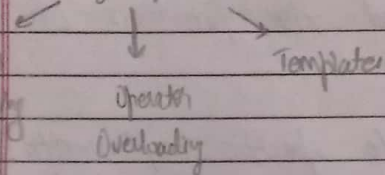 Templates
Operator
Overloading